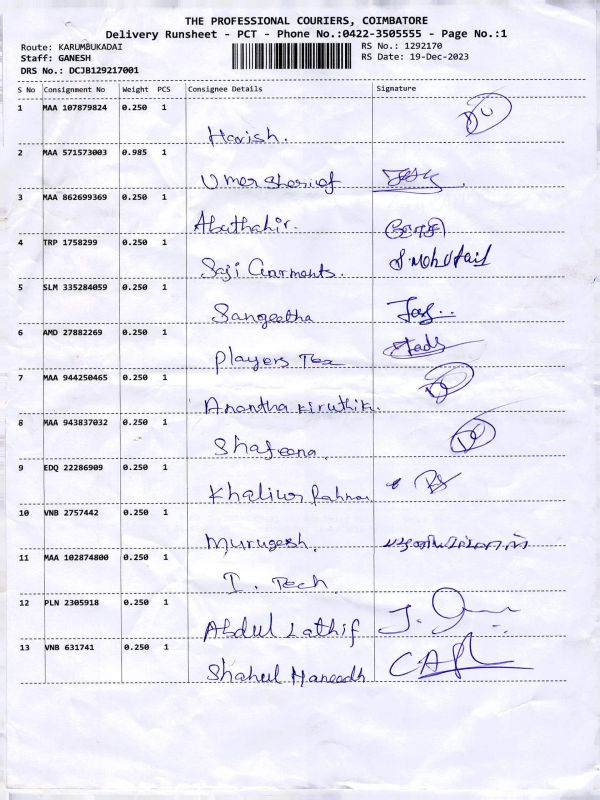 THE PROFESSIONAL COURIERS, COIMBATORE
Delivery Runsheet - PCT - Phone No.:0422-3505555 - Page No.:1
Route: KARUMBUKADAI RS No.: 1292170
Staff: GANESH RS Date: 19-Dec-2023
DRS No.: DCJB129217001
S No Consignment No Weight PCS Consignee Details Signature
1 MAA 107879824 0.250 1
Harish.
2 MAA 571573003 0.985 1
Umer Sheriof
3 MAA 862699369 0.250 1
Abuthahir.
4 TRP 1758299 0.250 1
Saji Garments. S.Mohd
5 SLM 335284059 0.250 1
Sangeetha
6 AMD 27882269 0.250 1
Players Tex
7 MAA 944250465 0.250 1
Anantha Kiruthik.
8 MAA 943837032 0.250 1
Shafeena.
9 EDQ 22286909 0.250 1
Khaliur Rahman
10 VNB 2757442 0.250 1
Murugesh.
11 MAA 102874800 0.250 1
I. Tech
12 PLN 2305918 0.250 1
Abdul Lathif
13 VNB 631741 0.250 1
Shahul Hameedh